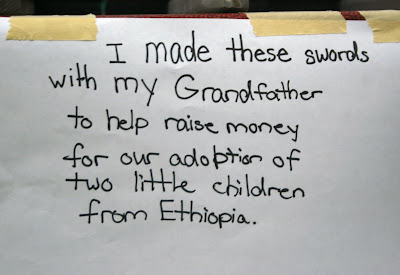 I made these swords
with my Grandfather
to help raise money
for our adoption of
two little children
from Ethiopia.